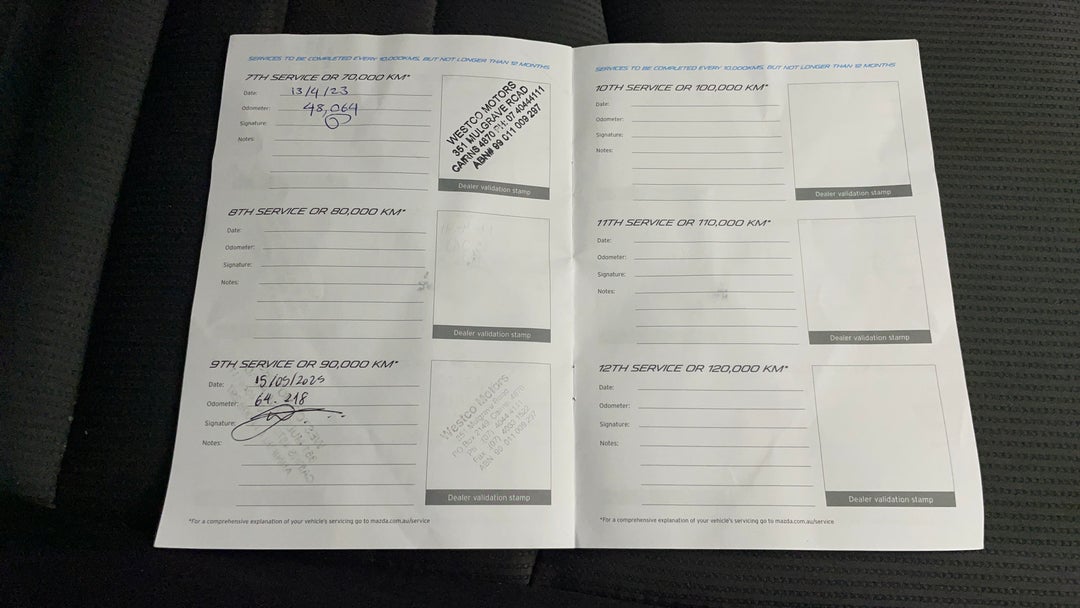 SERVICES TO BE COMPLETED EVERY 10,000KMS, BUT NOT LONGER THAN 12 MONTHS
7TH SERVICE OR 70,000 KM*
Date: 13/4/23
Odometer: 48,064
Signature:
Notes:
WESTCO MOTORS
351 MULGRAVE ROAD
CAIRNS 4870 PH: 07 40444111
ABN# 99 011 009 297
Dealer validation stamp
8TH SERVICE OR 80,000 KM*
Date:
Odometer:
Signature:
Notes:
Dealer validation stamp
9TH SERVICE OR 90,000 KM*
Date: 15/05/2025
Odometer: 64.218
Signature:
Notes:
Westco Motors
351 Mulgrave Road
PO Box 2149, Cairns 4870
Ph: (07) 4044
Fax: (07)
ABN 99 011 009 297
Dealer validation stamp
*For a comprehensive explanation of your vehicle's servicing go to mazda.com.au/service
SERVICES TO BE COMPLETED EVERY 10,000KMS, BUT NOT LONGER THAN 12 MONTHS
10TH SERVICE OR 100,000 KM*
Date:
Odometer:
Signature:
Notes:
Dealer validation stamp
11TH SERVICE OR 110,000 KM*
Date:
Odometer:
Signature:
Notes:
Dealer validation stamp
12TH SERVICE OR 120,000 KM*
Date:
Odometer:
Signature:
Notes:
Dealer validation stamp
*For a comprehensive explanation of your vehicle's servicing go to mazda.com.au/service